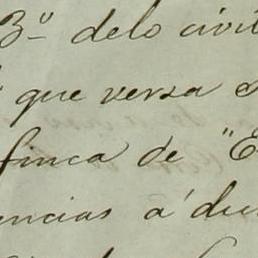 3º delo civil
que versa
finca de "E
encias a' du